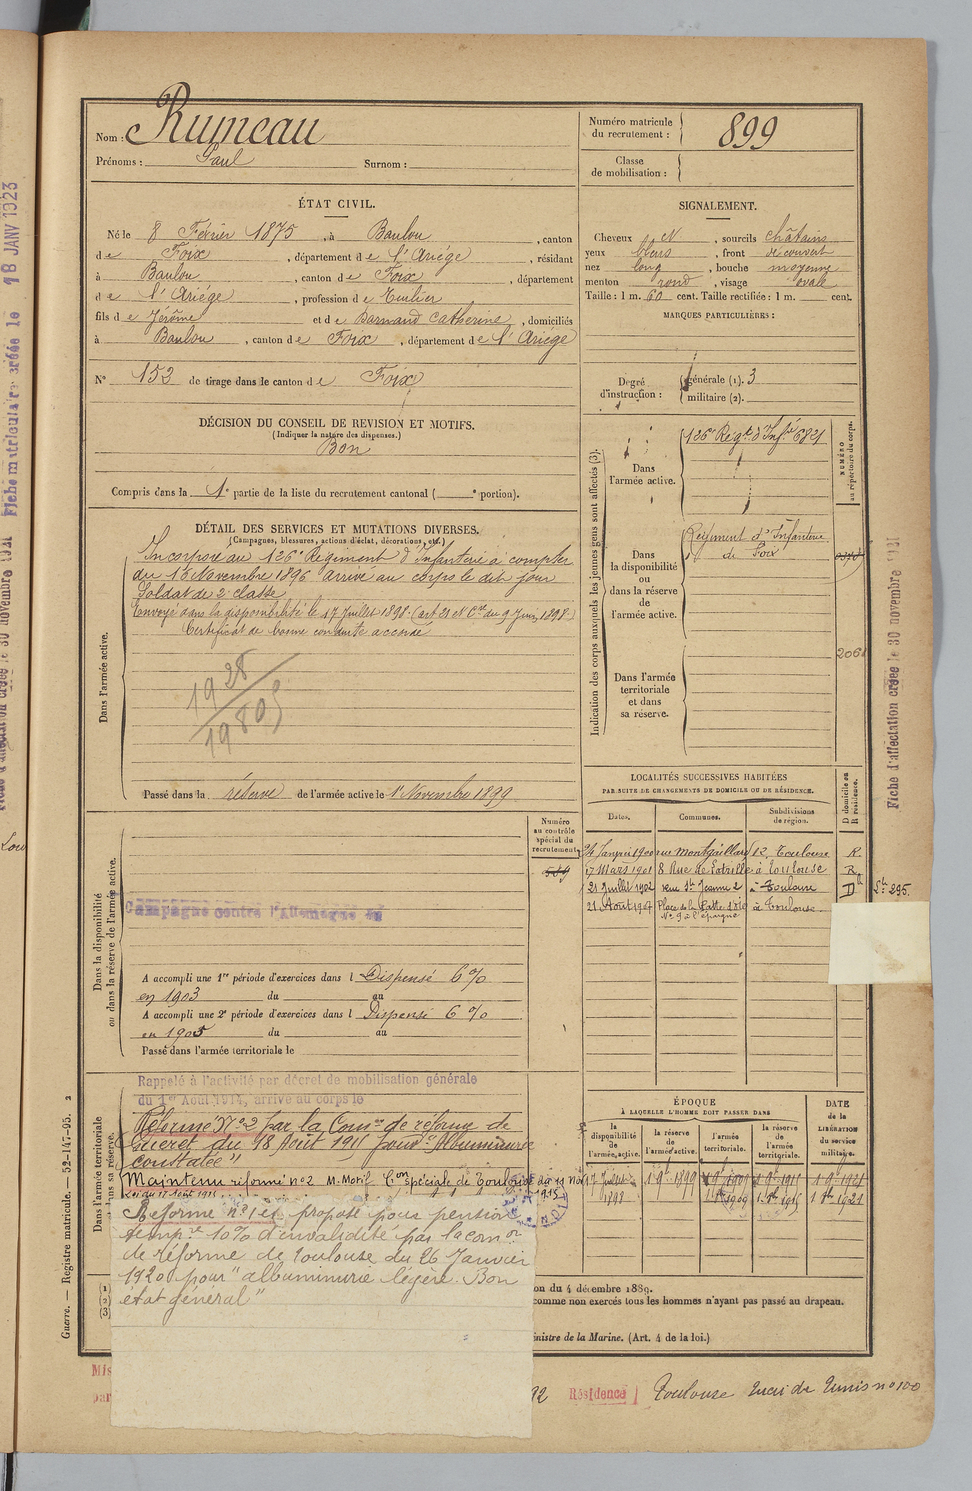 Nom : Rumeau
Prénoms : Paul Surnom :
Numéro matricule du recrutement : 899
Classe de mobilisation :
ÉTAT CIVIL.
Né le 8 Février 1875, à Baulou, canton
de Foix, département de l'Ariège, résidant
à Baulou, canton de Foix, département
de l'Ariège, profession de Tuilier
fils de Jérôme et de Barnaud Catherine, domiciliés
à Baulou, canton de Foix, département de l'Ariège
N° 152 de tirage dans le canton de Foix
SIGNALEMENT.
Cheveux N, sourcils châtains
yeux bleus, front découvert
nez long, bouche moyenne
menton rond, visage ovale
Taille : 1 m. 60 cent. Taille rectifiée : 1 m. cent.
MARQUES PARTICULIÈRES :
Degré d'instruction : générale (1). 3
militaire (2).
DÉCISION DU CONSEIL DE REVISION ET MOTIFS.
(Indiquer la nature des dispenses.)
Bon
Compris dans la 1e partie de la liste du recrutement cantonal ( e portion).
DÉTAIL DES SERVICES ET MUTATIONS DIVERSES.
(Campagnes, blessures, actions d'éclat, décorations, etc.)
Dans l'armée active.
Incorporé au 126e Régiment d'Infanterie à compter
du 16 Novembre 1896 arrivé au corps le dit jour
Soldat de 2e classe
Envoyé dans la disponibilité le 17 Juillet 1898 (art 21 et Cre du 9 Juin 1898)
Certificat de bonne conduite accordé
1928
19805
Passé dans la réserve de l'armée active le 1er Novembre 1899
Indication des corps auxquels les jeunes gens sont affectés (3).
Dans l'armée active.
126e Régt d'Infie 6821
NUMÉRO au répertoire du corps.
Dans la disponibilité ou dans la réserve de l'armée active.
Régiment d'Infanterie
de Foix
2061
Dans l'armée territoriale et dans sa réserve.
LOCALITÉS SUCCESSIVES HABITÉES
PAR SUITE DE CHANGEMENTS DE DOMICILE OU DE RÉSIDENCE.
Dates. Communes. Subdivisions de région. D domicile ou R résidence.
24 Janvier 1900 rue Montgaillard 12, Toulouse R.
17 Mars 1901 8 Rue de l'étoile à Toulouse R.
21 Juillet 1902 rue Ste Jeanne 2 à Toulouse D
21 Août 1907 Place de la Patte d'oie à Toulouse.
N° 9 à l'épargne
St 295
Dans la disponibilité ou dans la réserve de l'armée active.
Numéro au contrôle spécial du recrutement.
589
Campagne contre l'Allemagne
A accompli une 1re période d'exercices dans l Dispensé 6 %
en 1903 du au
A accompli une 2e période d'exercices dans l Dispensé 6 %
en 1905 du au
Passé dans l'armée territoriale le
Dans l'armée territoriale et dans sa réserve.
Rappelé à l'activité par décret de mobilisation générale
du 1er Août 1914, arrivé au corps le
Réformé N° 2 par la Comon de réforme de
du 18 Août 1915 pour "Albuminurie
constatée"
Maintenu réformé n°2 M. Motif Con spéciale de Toulouse du 19 Nov 1915
Loi du 17 août 1915
Réformé n° 1 et proposé pour pension
tempre 10% d'invalidité par la comon
de réforme de Toulouse du 26 Janvier
1920 pour "albuminurie légère. Bon
état général"
ÉPOQUE
À LAQUELLE L'HOMME DOIT PASSER DANS
la disponibilité de l'armée active. la réserve de l'armée active. l'armée territoriale. la réserve de l'armée territoriale.
DATE de la LIBÉRATION du service militaire.
17 Juillet 1898 1 9bre 1899 1 9bre 1909 1 9bre 1915 1 9bre 1921
1909 1 8bre 1915 1 8bre 1921
(1)
(2)
(3)
on du 4 décembre 1889.
comme non exercés tous les hommes n'ayant pas passé au drapeau.
inistre de la Marine. (Art. 4 de la loi.)
Résidence Toulouse rue de Tunis n° 100
Guerre. — Registre matricule. — 52-147-95. 2
Fiche matriculaire créée le 18 JANV 1923
Fiche d'affectation créée le 30 novembre 1921